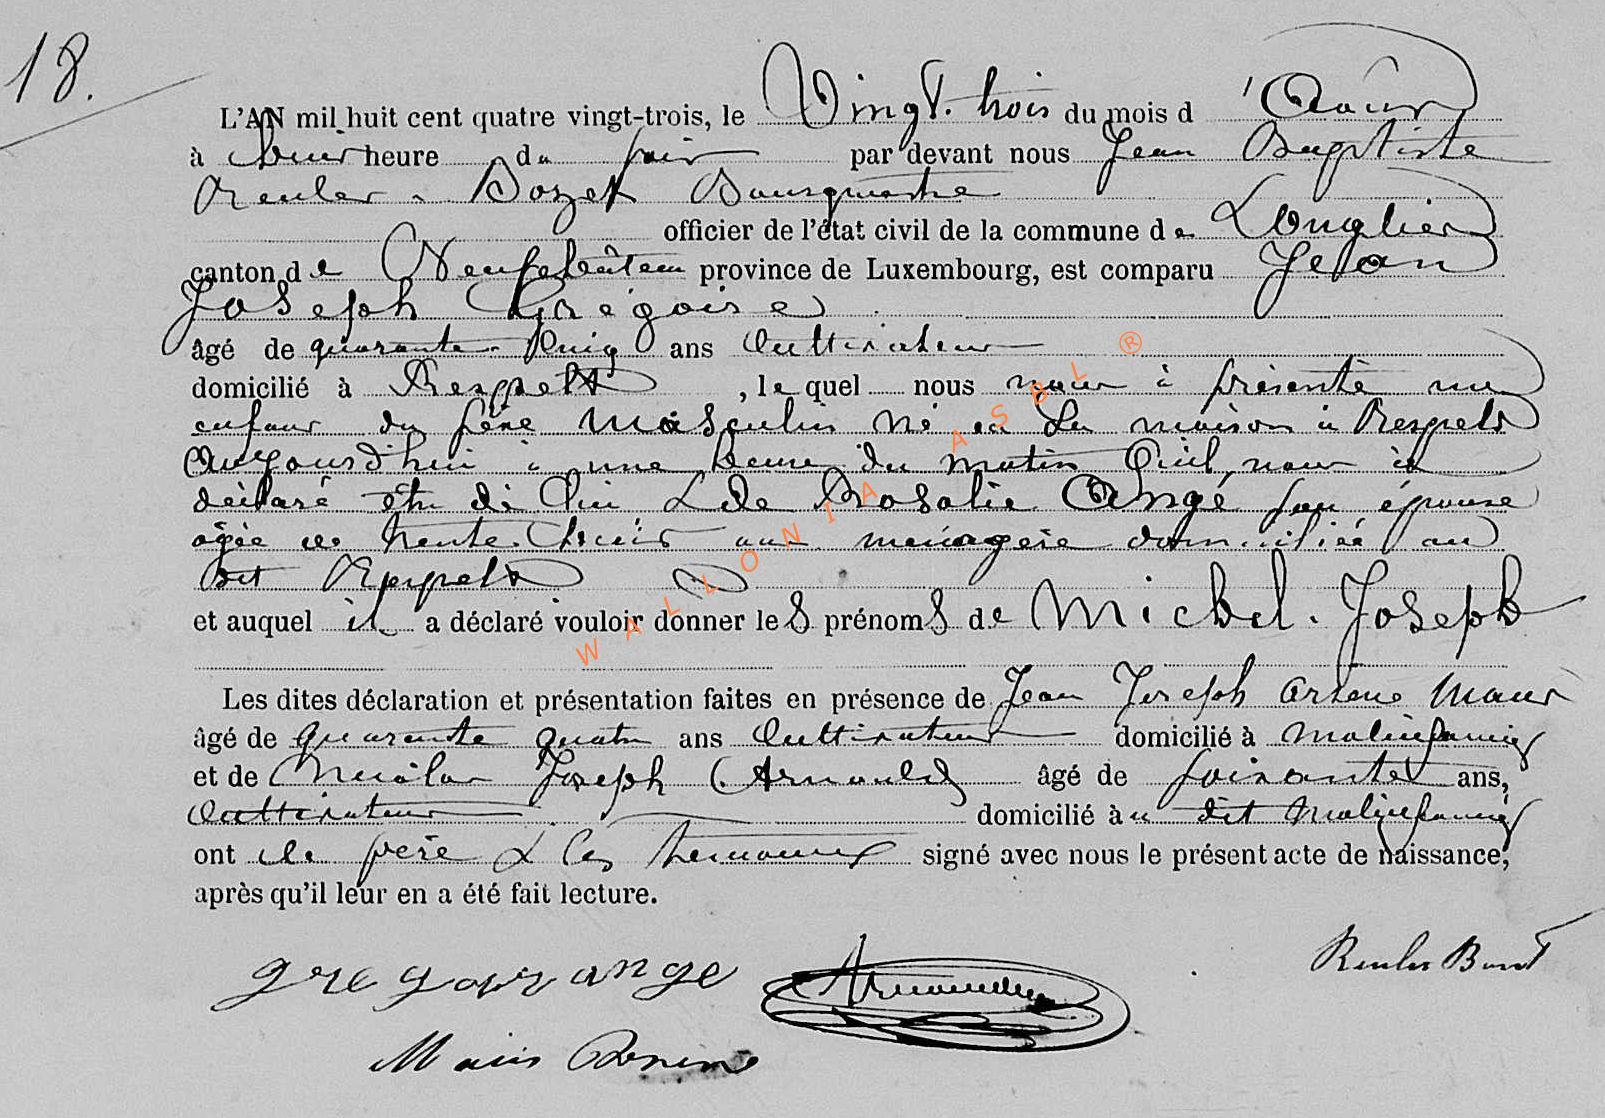 18.
L'AN mil huit cent quatre vingt-trois, le Vingt trois du mois d'Août
à heure du soir par devant nous Jean Baptiste
Reuler Bozet Bourgmestre
officier de l'état civil de la commune de Longlier
canton de Neufchâteau province de Luxembourg, est comparu Jean
Joseph Grégoire
âgé de quarante cinq ans Cultivateur
domicilié à Respelt, lequel nous nous à présenté un
enfant du sexe masculin né en Sa maison à Respelt
Aujourd'hui à une heure du matin Qu'il nous à
déclaré être de lui & de Rosalie Angé son épouse
agée de trente ans ménagère domiciliée au
dit Respelt
et auquel il a déclaré vouloir donner leS prénomS de Michel. Joseph
Les dites déclaration et présentation faites en présence de Jean Joseph Arsène Maus
âgé de quarante quatre ans Cultivateur domicilié à Molinfaing
et de Nicolas Joseph Arnould âgé de soixante ans,
Cultivateur domicilié àu dit Molinfaing
ont le père & les témoins signé avec nous le présent acte de naissance,
après qu'il leur en a été fait lecture.
Maus
WALLONIA ASBL ®